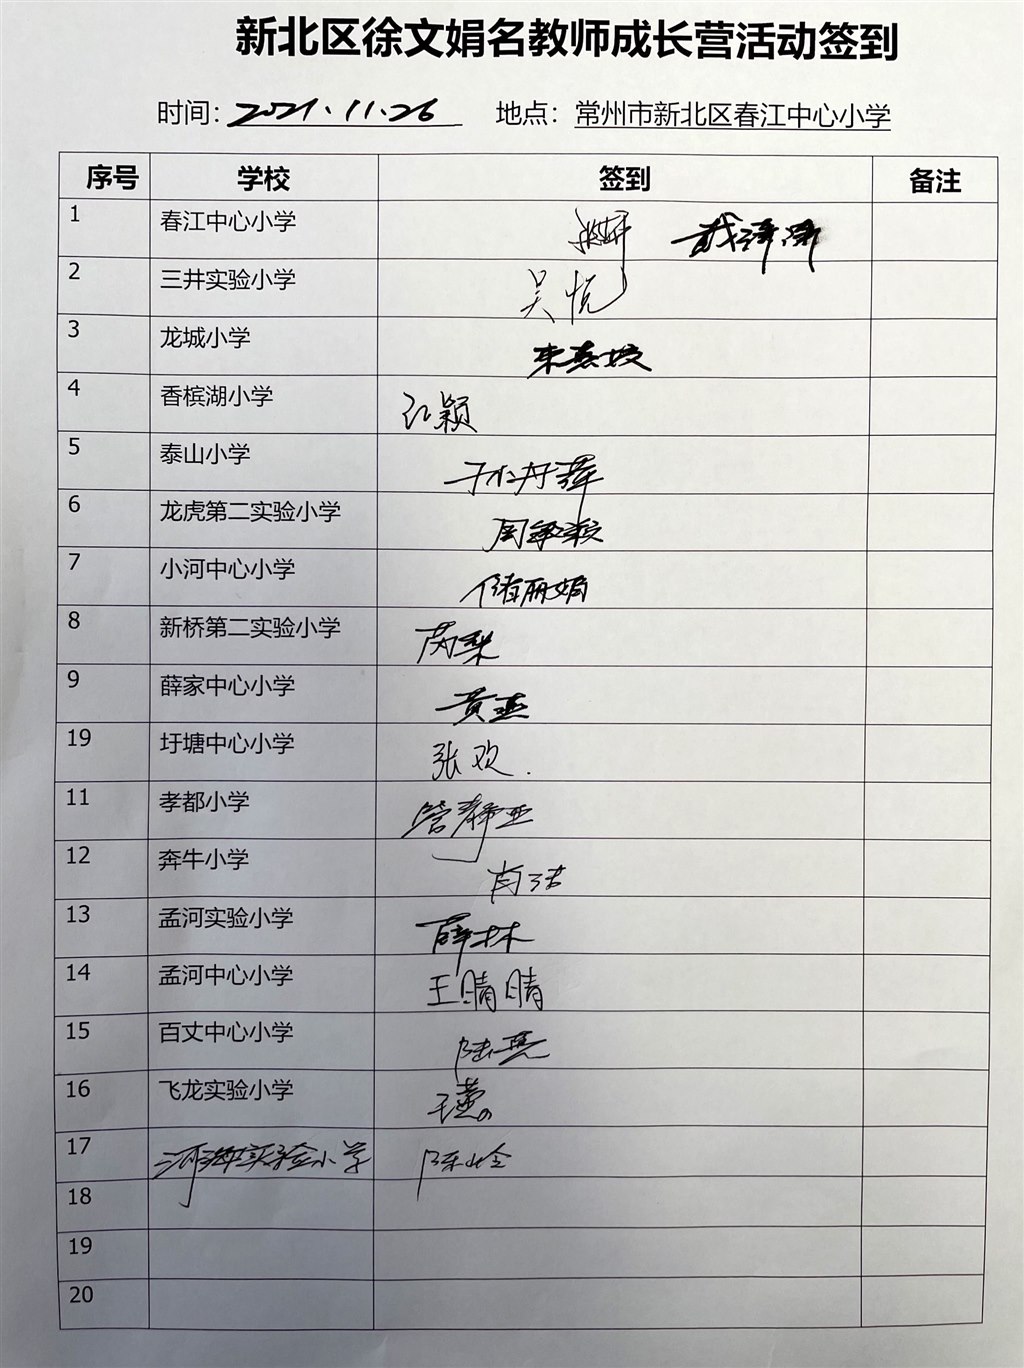 新北区徐文娟名教师成长营活动签到
时间：2021.11.26 地点：常州市新北区春江中心小学
序号 学校 签到 备注
1 春江中心小学
2 三井实验小学 吴悦
3 龙城小学 朱燕姣
4 香槟湖小学 孔颖
5 泰山小学 孙丹萍
6 龙虎第二实验小学 周敏颖
7 小河中心小学 储丽娟
8 新桥第二实验小学 芮梨
9 薛家中心小学 黄燕
19 圩塘中心小学 张欢.
11 孝都小学 管静亚
12 奔牛小学 肖洁
13 孟河实验小学 薛林
14 孟河中心小学 王晴晴
15 百丈中心小学 陆燕
16 飞龙实验小学
17 河海实验小学 陈岭
18
19
20